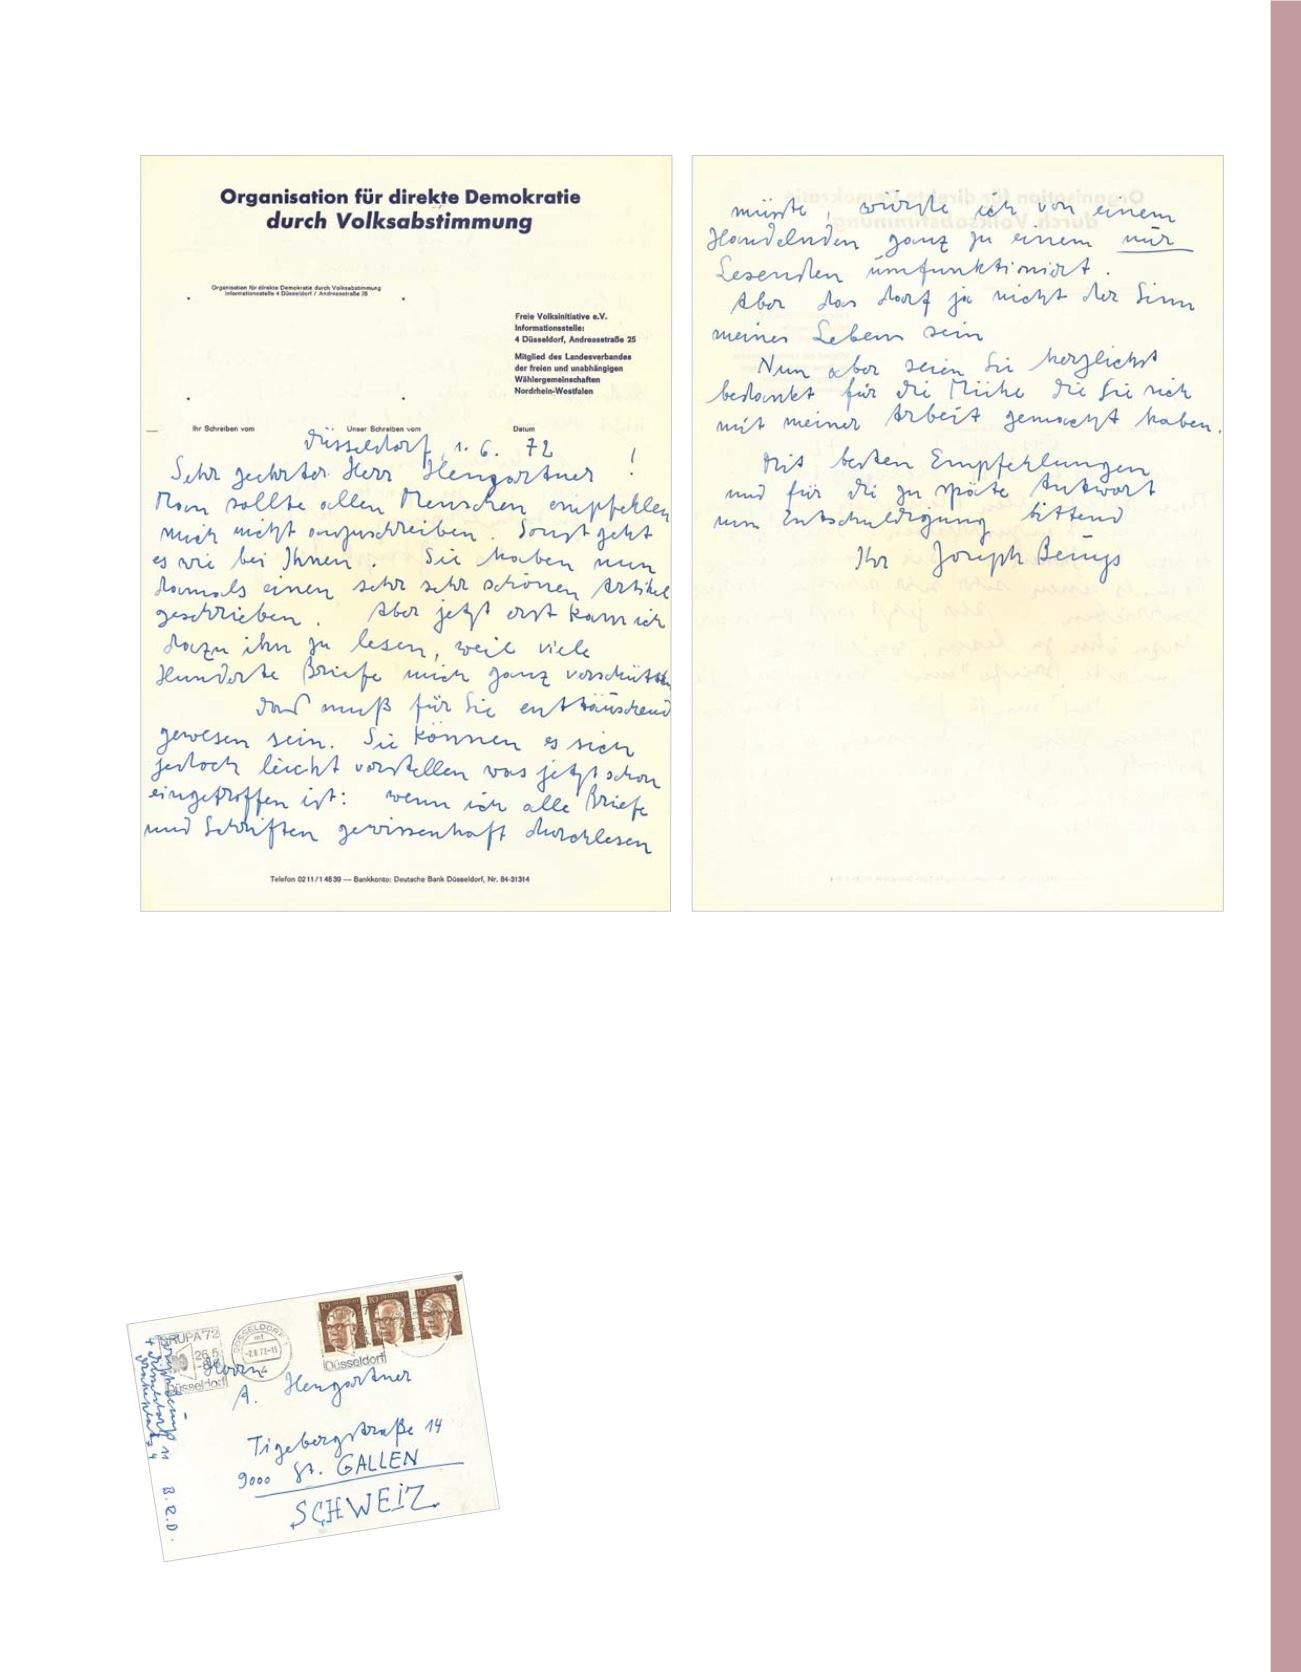 Organisation für direkte Demokratie
durch Volksabstimmung
Organisation für direkte Demokratie durch Volksabstimmung
Informationsstelle 4 Düsseldorf / Andreasstraße 25
Freie Volksinitiative e.V.
Informationsstelle:
4 Düsseldorf, Andreasstraße 25
Mitglied des Landesverbandes
der freien und unabhängigen
Wählergemeinschaften
Nordrhein-Westfalen
Ihr Schreiben vom Unser Schreiben vom Datum
Düsseldorf, 1. 6. 72
Sehr geehrter Herr Hengartner !
Man sollte allen Menschen empfehlen
mich nicht anzuschreiben. Sonst geht
es wie bei Ihnen. Sie haben nun
damals einen sehr sehr schönen Artikel
geschrieben. Aber jetzt erst kam ich
dazu ihn zu lesen, weil viele
Hunderte Briefe mich ganz verschütten
das muß für Sie enttäuschend
gewesen sein. Sie können es sich
jedoch leicht vorstellen was jetzt schon
eingetroffen ist: wenn ich alle Briefe
und Schriften gewissenhaft durchlesen
Telefon 0211/14839 — Bankkonto: Deutsche Bank Düsseldorf, Nr. 84-31314
müsste, würde ich von einem
Handelnden ganz zu einem nur
Lesenden umfunktioniert.
Aber das darf ja nicht der Sinn
meines Lebens sein
Nun aber seien Sie herzlichst
bedankt für die Mühe die Sie sich
mit meiner Arbeit gemacht haben.
Mit besten Empfehlungen
und für die zu späte Antwort
um Entschuldigung bittend
Ihr Joseph Beuys
DRUPA 72
26.5.
Düsseldorf
DÜSSELDORF 1
mt
4
10 10 10
Düsseldorf
Herrn
A. Hengartner
Tigerbergstraße 14
9000 St. GALLEN
SCHWEIZ
Joseph Beuys
4 Düsseldorf 11
Drakeplatz 4
B.R.D.